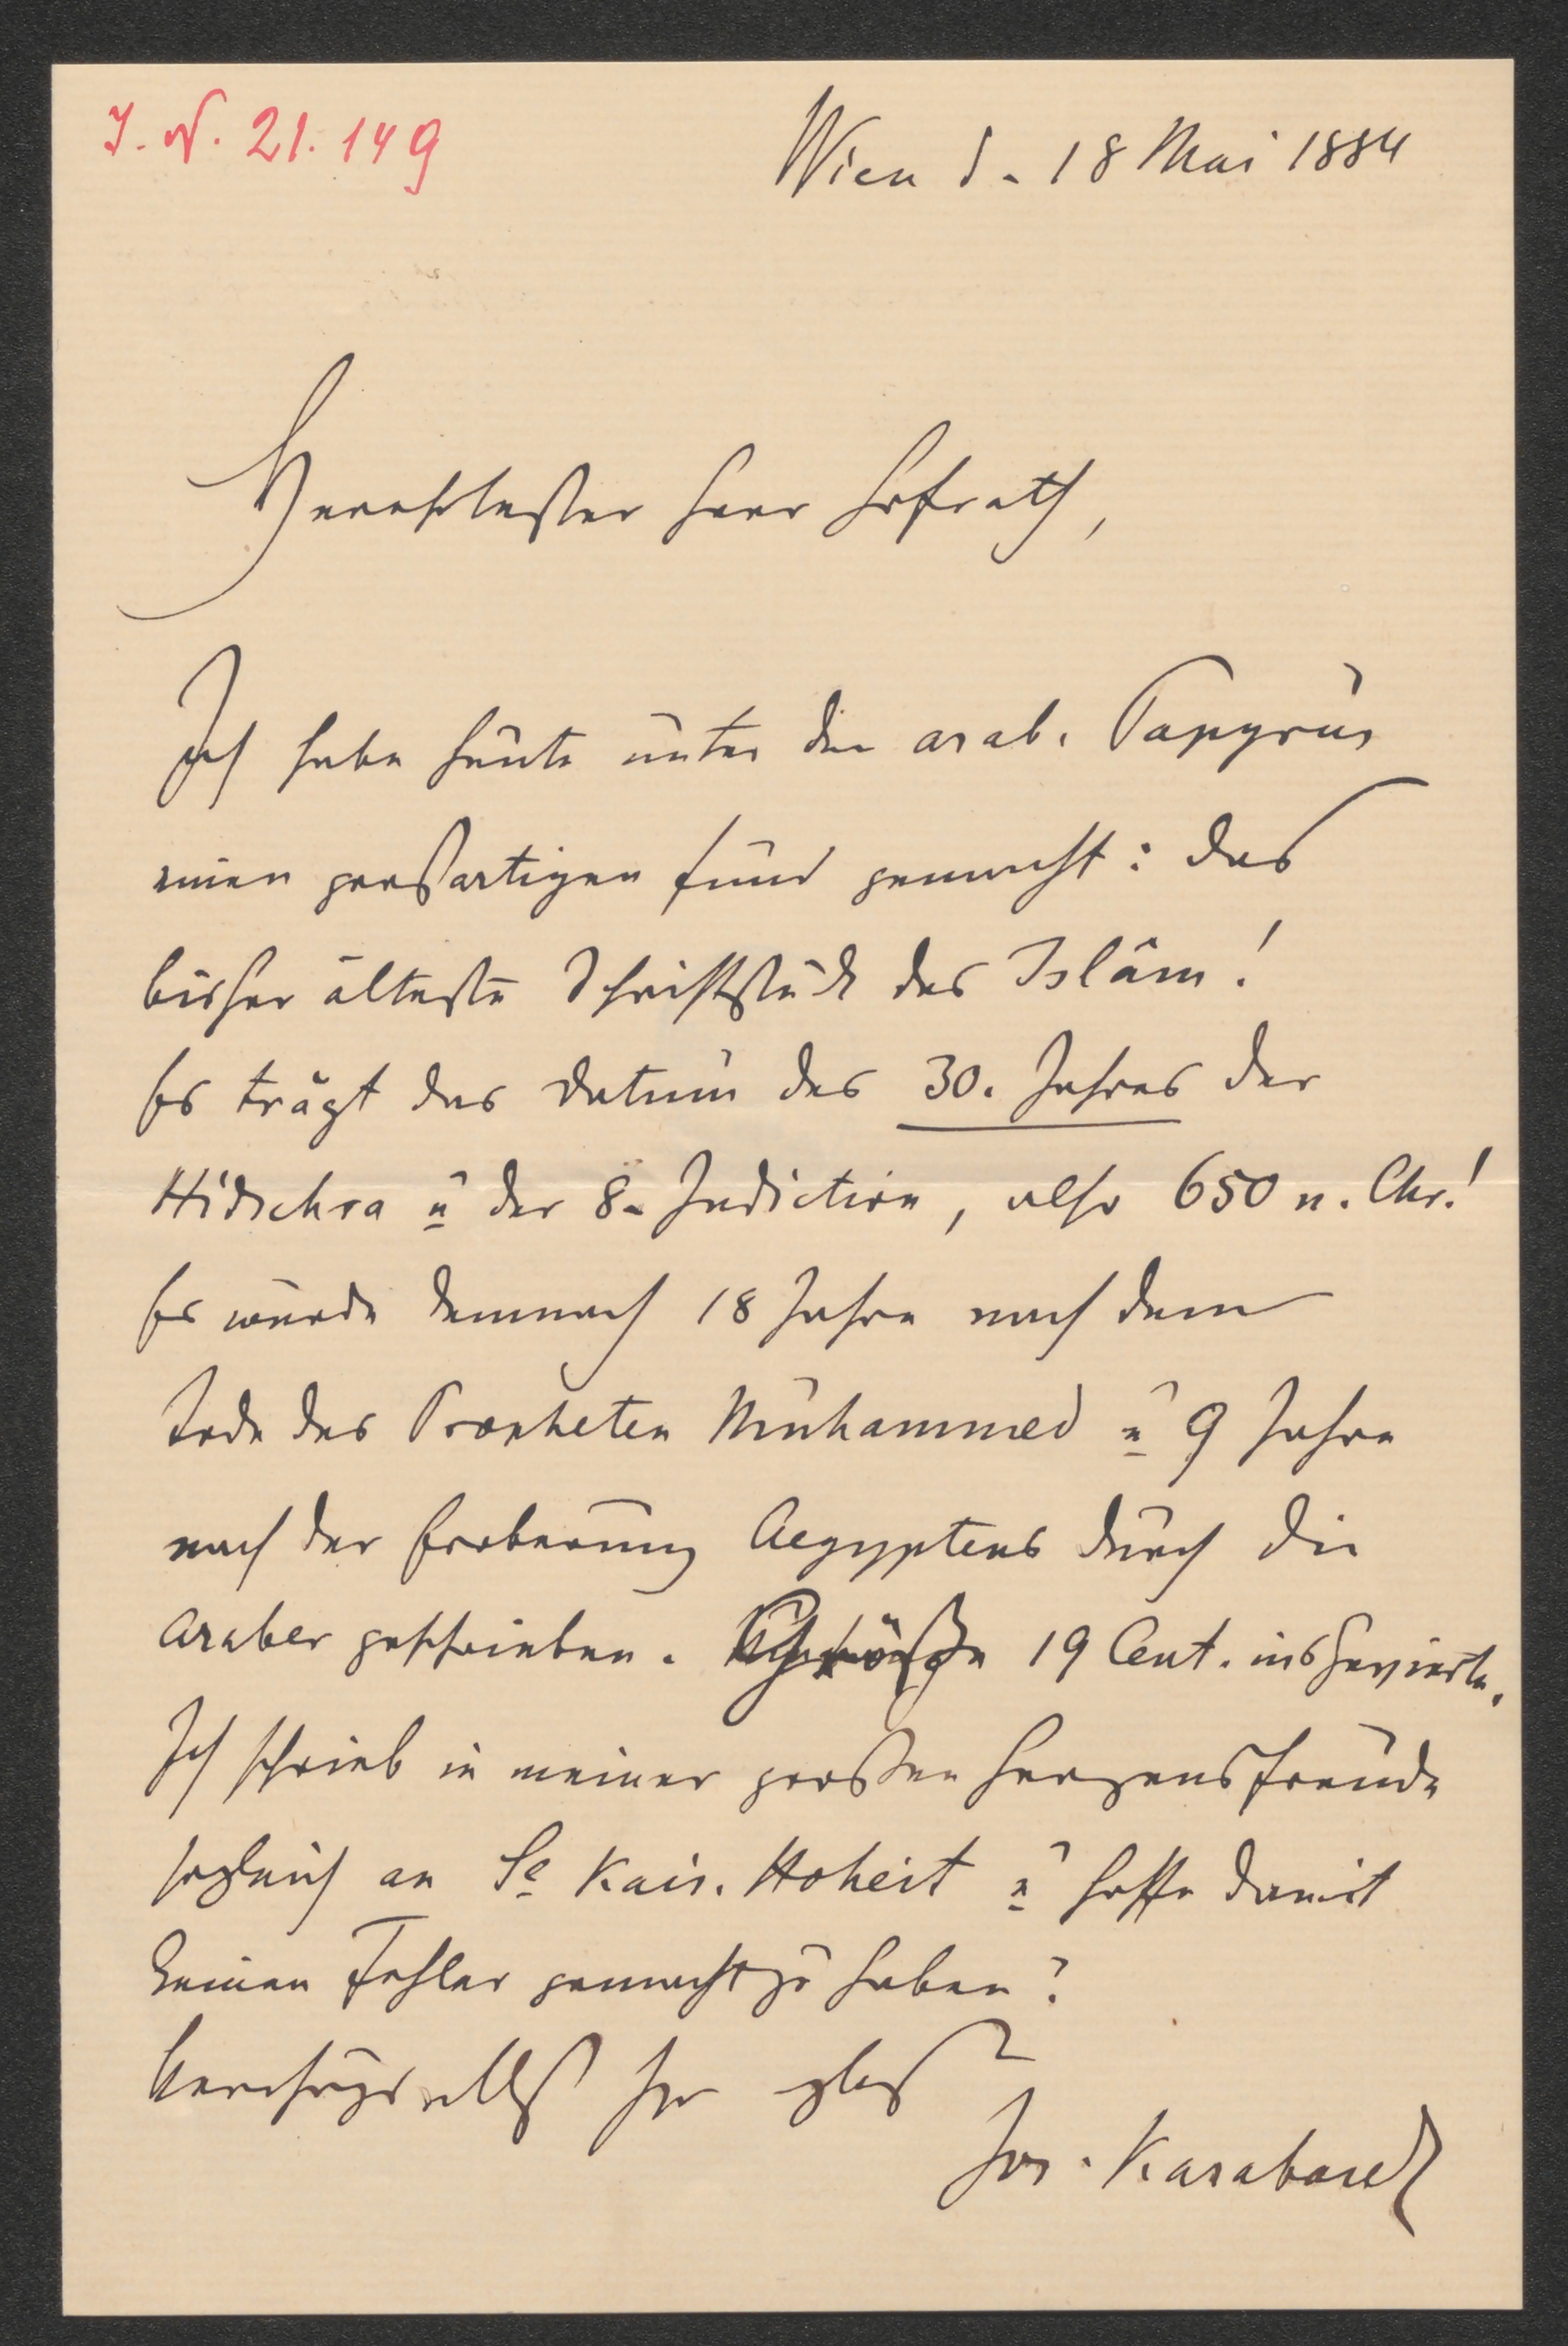 I. N. 21.149
Wien d. 18 Mai 1884
Verehrtester Herr Hofrath,
Ich habe heute unter den arab. Papyrus
einen großartigen Fund gemacht: das
bisher älteste Schriftstück des Islâm!
Es trägt das Datum des 30. Jahres der
Hidschra u der 8. Indiction, also 650 n. Chr.!
Es wurde demnach 18 Jahre nach dem
Tode des Propheten Muhammed u 9 Jahre
nach der Eroberung Aegyptens durch die
Araber geschrieben. Größe 19 Cent. ins Gevierte.
Ich schrieb in meiner großen Herzensfreude
sogleich an Se Kais. Hoheit u hoffe damit
keinen Fehler gemacht zu haben?
Verehrungsvollst Ihr
Jos. Karabacek